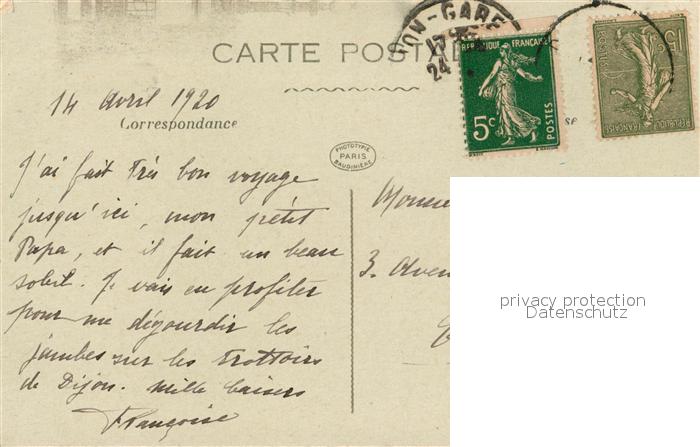 CARTE POSTALE
14 Avril 1920
Correspondance
J'ai fait très bon voyage
jusqu'ici, mon petit
Papa, et il fait un beau
soleil. Je vais en profiter
pour me dégourdir les
jambes sur les trottoirs
de Dijon. Mille baisers
Françoise
PHOTOTYPIE
PARIS
BAUDINIÈRE
ON-GARE
17
24
REPUBLIQUE FRANÇAISE
5c
POSTES
15c
REPUBLIQUE
FRANÇAISE
3. Aven
privacy protection
Datenschutz